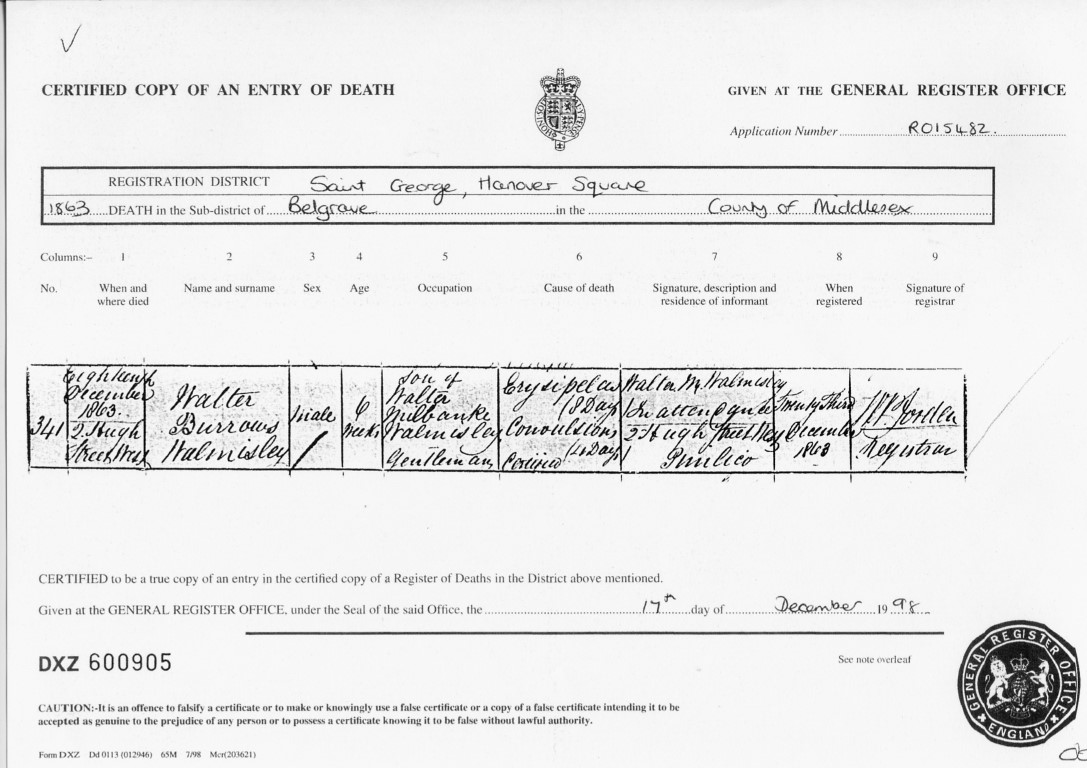 CERTIFIED COPY OF AN ENTRY OF DEATH
GIVEN AT THE GENERAL REGISTER OFFICE
Application Number R015482.
REGISTRATION DISTRICT Saint George, Hanover Square
1863 DEATH in the Sub-district of Belgrave in the County of Middlesex
Columns:– 1 2 3 4 5 6 7 8 9
No. When and where died Name and surname Sex Age Occupation Cause of death Signature, description and residence of informant When registered Signature of registrar
341
Eighteenth
December
1863.
2 Hugh
Street West
Walter
Burrows
Walmisley
Male
6
weeks
Son of
Walter
Milbanke
Walmisley
Gentleman
Erysipelas
18 Days
Convulsions
Certified
Walter M. Walmisley
In attendance
2 Hugh Street West
Pimlico
Twenty Third
December
1863
Registrar
CERTIFIED to be a true copy of an entry in the certified copy of a Register of Deaths in the District above mentioned.
Given at the GENERAL REGISTER OFFICE, under the Seal of the said Office, the 17th day of December 1998
DXZ 600905
See note overleaf
CAUTION:-It is an offence to falsify a certificate or to make or knowingly use a false certificate or a copy of a false certificate intending it to be
accepted as genuine to the prejudice of any person or to possess a certificate knowing it to be false without lawful authority.
Form DXZ Dd 0113 (012946) 65M 7/98 Mcr(203621)
GENERAL REGISTER OFFICE
ENGLAND